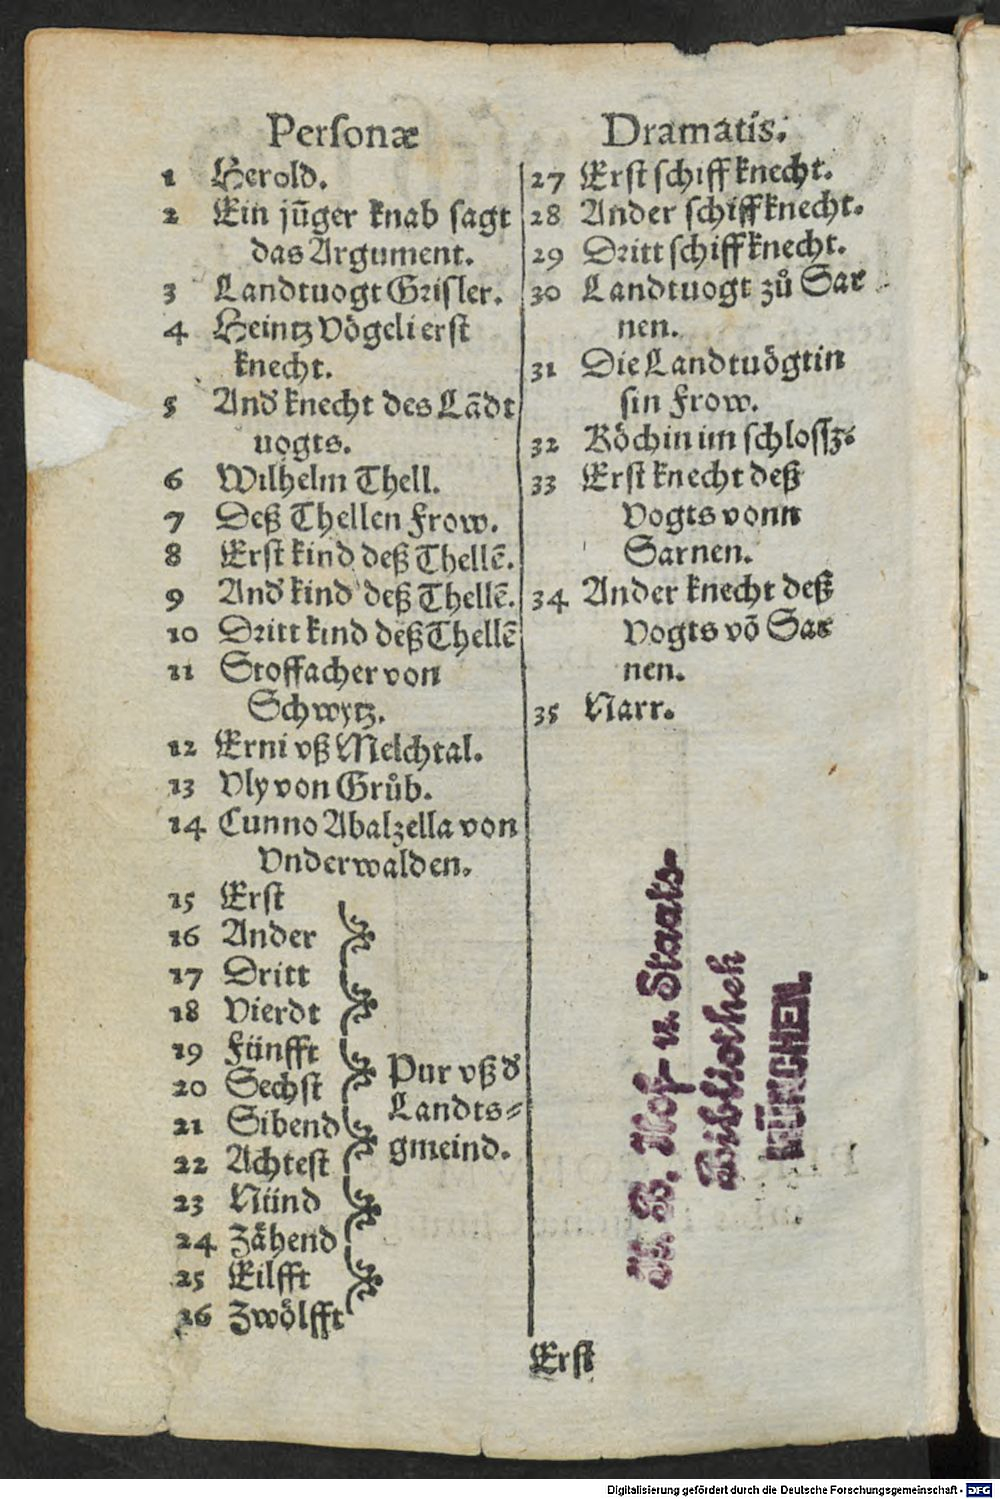 Personæ Dramatis.
1 Herold.
2 Ein jũger knab sagt
das Argument.
3 Landtuogt Grisler.
4 Heintz Vögeli erst
knecht.
5 And' knecht des Lãdt
uogts.
6 Wilhelm Thell.
7 Deß Thellen Frow.
8 Erst kind deß Thellẽ.
9 And' kind deß Thellẽ.
10 Dritt kind deß Thellẽ
11 Stoffacher von
Schwytz.
12 Erni vß Melchtal.
13 Vly von Grůb.
14 Cunno Abalzella von
Vnderwalden.
15 Erst
16 Ander
17 Dritt
18 Vierdt
19 Fünfft
20 Sechst
21 Sibend
22 Achtest
23 Nünd
24 Zähend
25 Eilfft
26 Zwölfft
Pur vß d'
Landts-
gmeind.
27 Erst schiffknecht.
28 Ander schiffknecht.
29 Dritt schiffknecht.
30 Landtuogt zů Sar
nen.
31 Die Landtuögtin
sin Frow.
32 Köchin im schlossz.
33 Erst knecht deß
Vogts vonn
Sarnen.
34 Ander knecht deß
Vogts võ Sar
nen.
35 Narr.
Erst
K. B. Hof- u. Staats-
Bibliothek
MÜNCHEN.
Digitalisierung gefördert durch die Deutsche Forschungsgemeinschaft - DFG